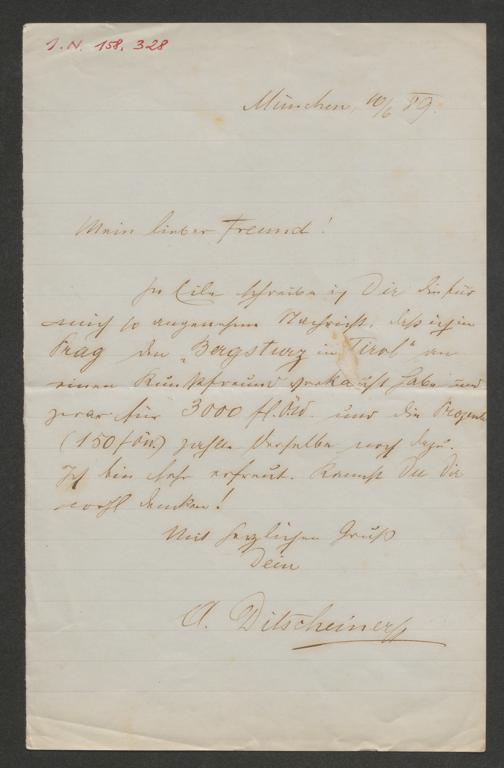 J.N. 158.328
München, 10/6 89.
Mein lieber Freund!
In Eile schreibe ich Dir die für
mich so angenehme Nachricht, daß ich in
Prag den „Bergsturz in Tirol" an
einen Kunstfreund verkauft habe und
zwar für 3000 fl. öW. und die Prozente
(150 f öW.) zahlte derselbe noch dazu.
Ich bin sehr erfreut. Kannst Du Dir
wohl denken!
Mit herzlichen Gruß
Dein
A. Ditscheiner